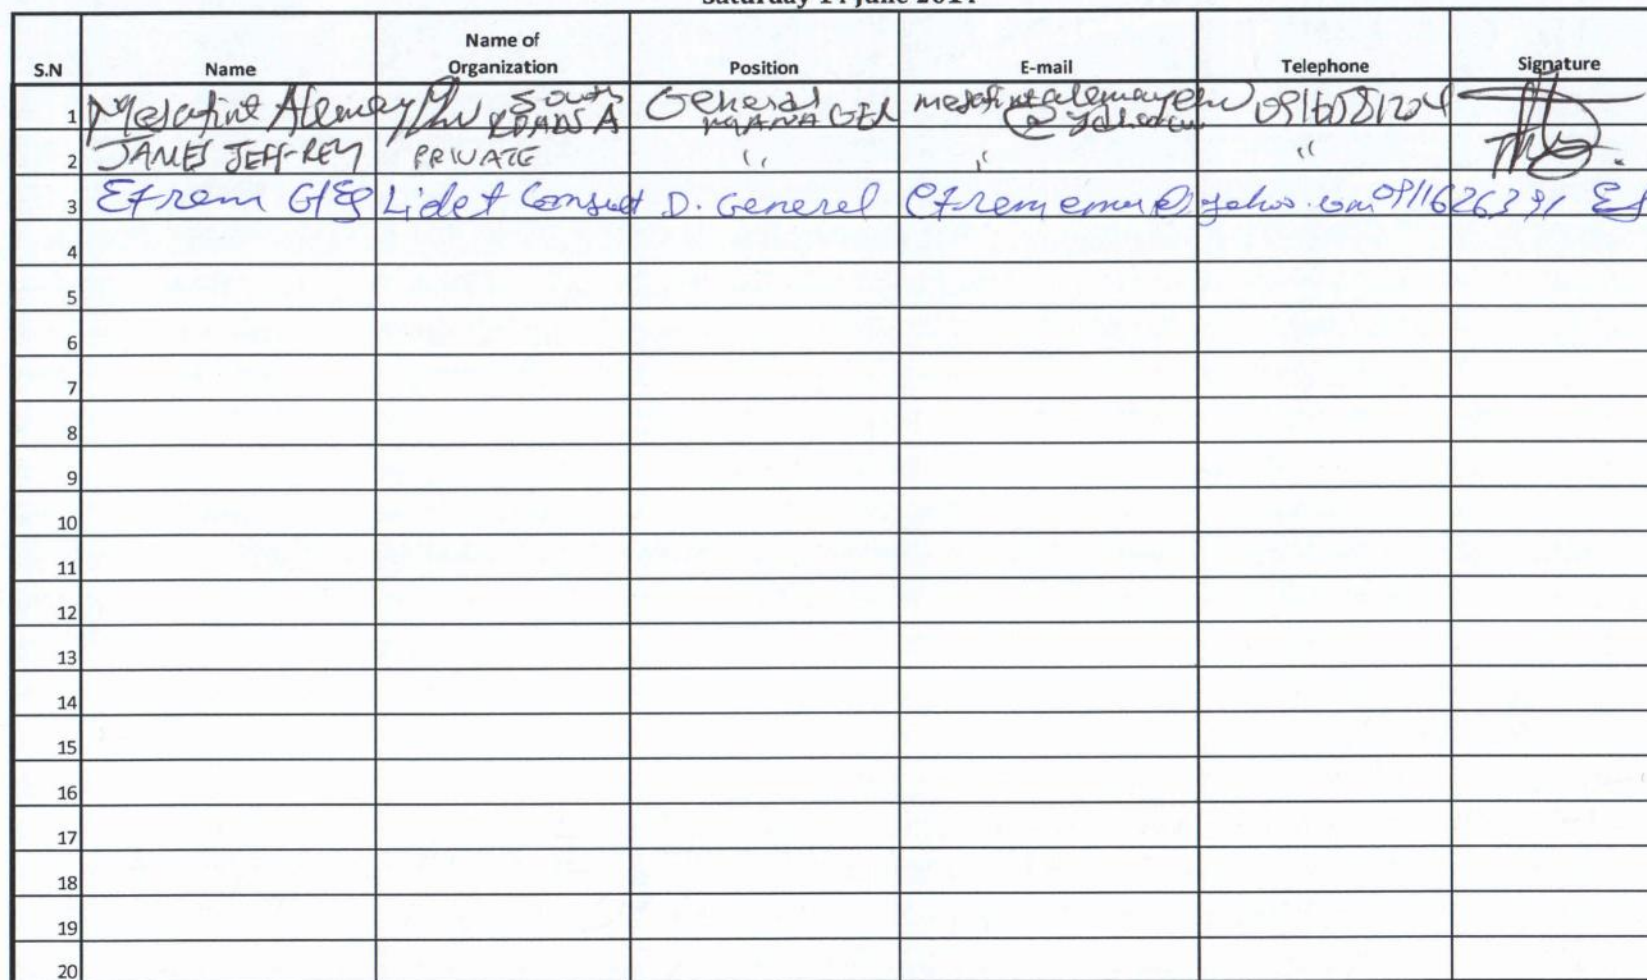 Saturday 14 June 2014
S.N Name Name of Organization Position E-mail Telephone Signature
1 Mesafint Alemayehu South ROADS A General MANAGER mesafintalemayehu @ yahoo.com
2 JAMES JEFF-REY PRIVATE " " "
3 Efrem G/Eg Lidet Consult D. General efrememu@yahoo.com 0911626391 Ef
4
5
6
7
8
9
10
11
12
13
14
15
16
17
18
19
20